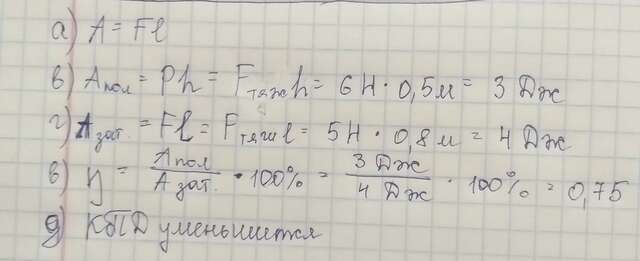 а) A = Fl
в) Aпол = Ph = Fтяжh = 6H · 0,5м = 3 Дж
г) Aзат. = Fl = Fтяги l = 5H · 0,8м = 4 Дж
в) η = Aпол / Aзат. · 100% = 3 Дж / 4 Дж · 100% = 0,75
д) КПД уменьшится